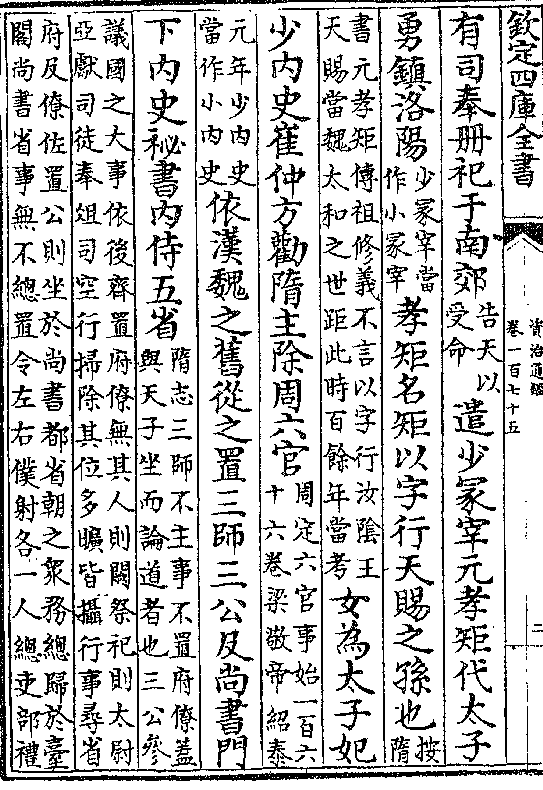 欽定四庫全書
資治通鑑
卷一百七十五
二
有司奉冊祀于南郊告天以
受命
遣少冢宰元孝矩代太子
勇鎮洛陽少冢宰當
作小冢宰
孝矩名矩以字行天賜之孫也按
隋
書元孝矩傳祖修義不言以字行汝陰王
天賜當魏太和之世距此時百餘年當考
女為太子妃
少内史崔仲方勸隋主除周六官周定六官事始一百六
十六卷梁敬帝紹泰
元年少内史
當作小内史
依漢魏之舊從之置三師三公及尚書門
下内史祕書内侍五省隋志三師不主事不置府僚蓋
與天子坐而論道者也三公參
議國之大事依後齊置府僚無其人則闕祭祀則太尉
亞獻司徒奉俎司空行掃除其位多曠皆攝行事尋省
府及僚佐置公則坐於尚書都省朝之衆務總歸於臺
閣尚書省事無不總置令左右僕射各一人總吏部禮